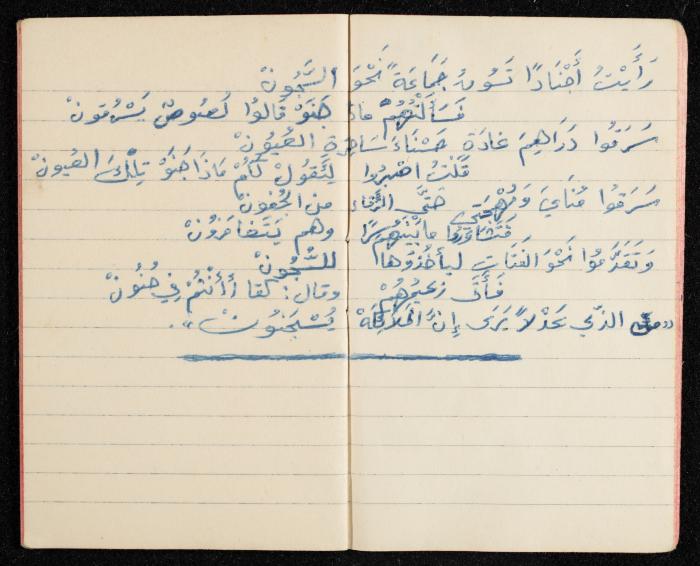 رَأَيْتُ أَجْنَادًا تَسُوقُ جَمَاعَةً نَحْوَ السُّجُونْ
فَسَأَلْتُهُمْ مَاذَا جَنَوْ قَالُوا لُصُوصٌ يَسْرِقُونْ
سَرَقُوا دَرَاهِمَ غَادَةٍ حَسْنَاءَ سَاحِرَةِ العُيُونْ
قُلْتُ اصْبِرُوا لِتَقُولَ لَكُمْ مَاذَا جَنَتْ تِلْكَ العُيونْ
سَرَقُوا مُنَايَ وَمُهْجَتي حَتَّى الرُّقَاد من الجُفونْ
فَتَشَاوَرُوا مَا بَيْنَهُمْ سِرًّا وهم يَتَغَامَزُونْ
وَتَقَدَّمُوا نَحْوَ الفَتَاتِ ليأخُذُوهَا للسُّجُونْ
فَأَتَى زعيمُهُمْ وقال: كفا أَأَنْتُمْ فِي جُنُونْ
«من الذي عَدْلاً يَرَى إِنَّ المَلَائِكَةْ يُسْجَنُونْ».